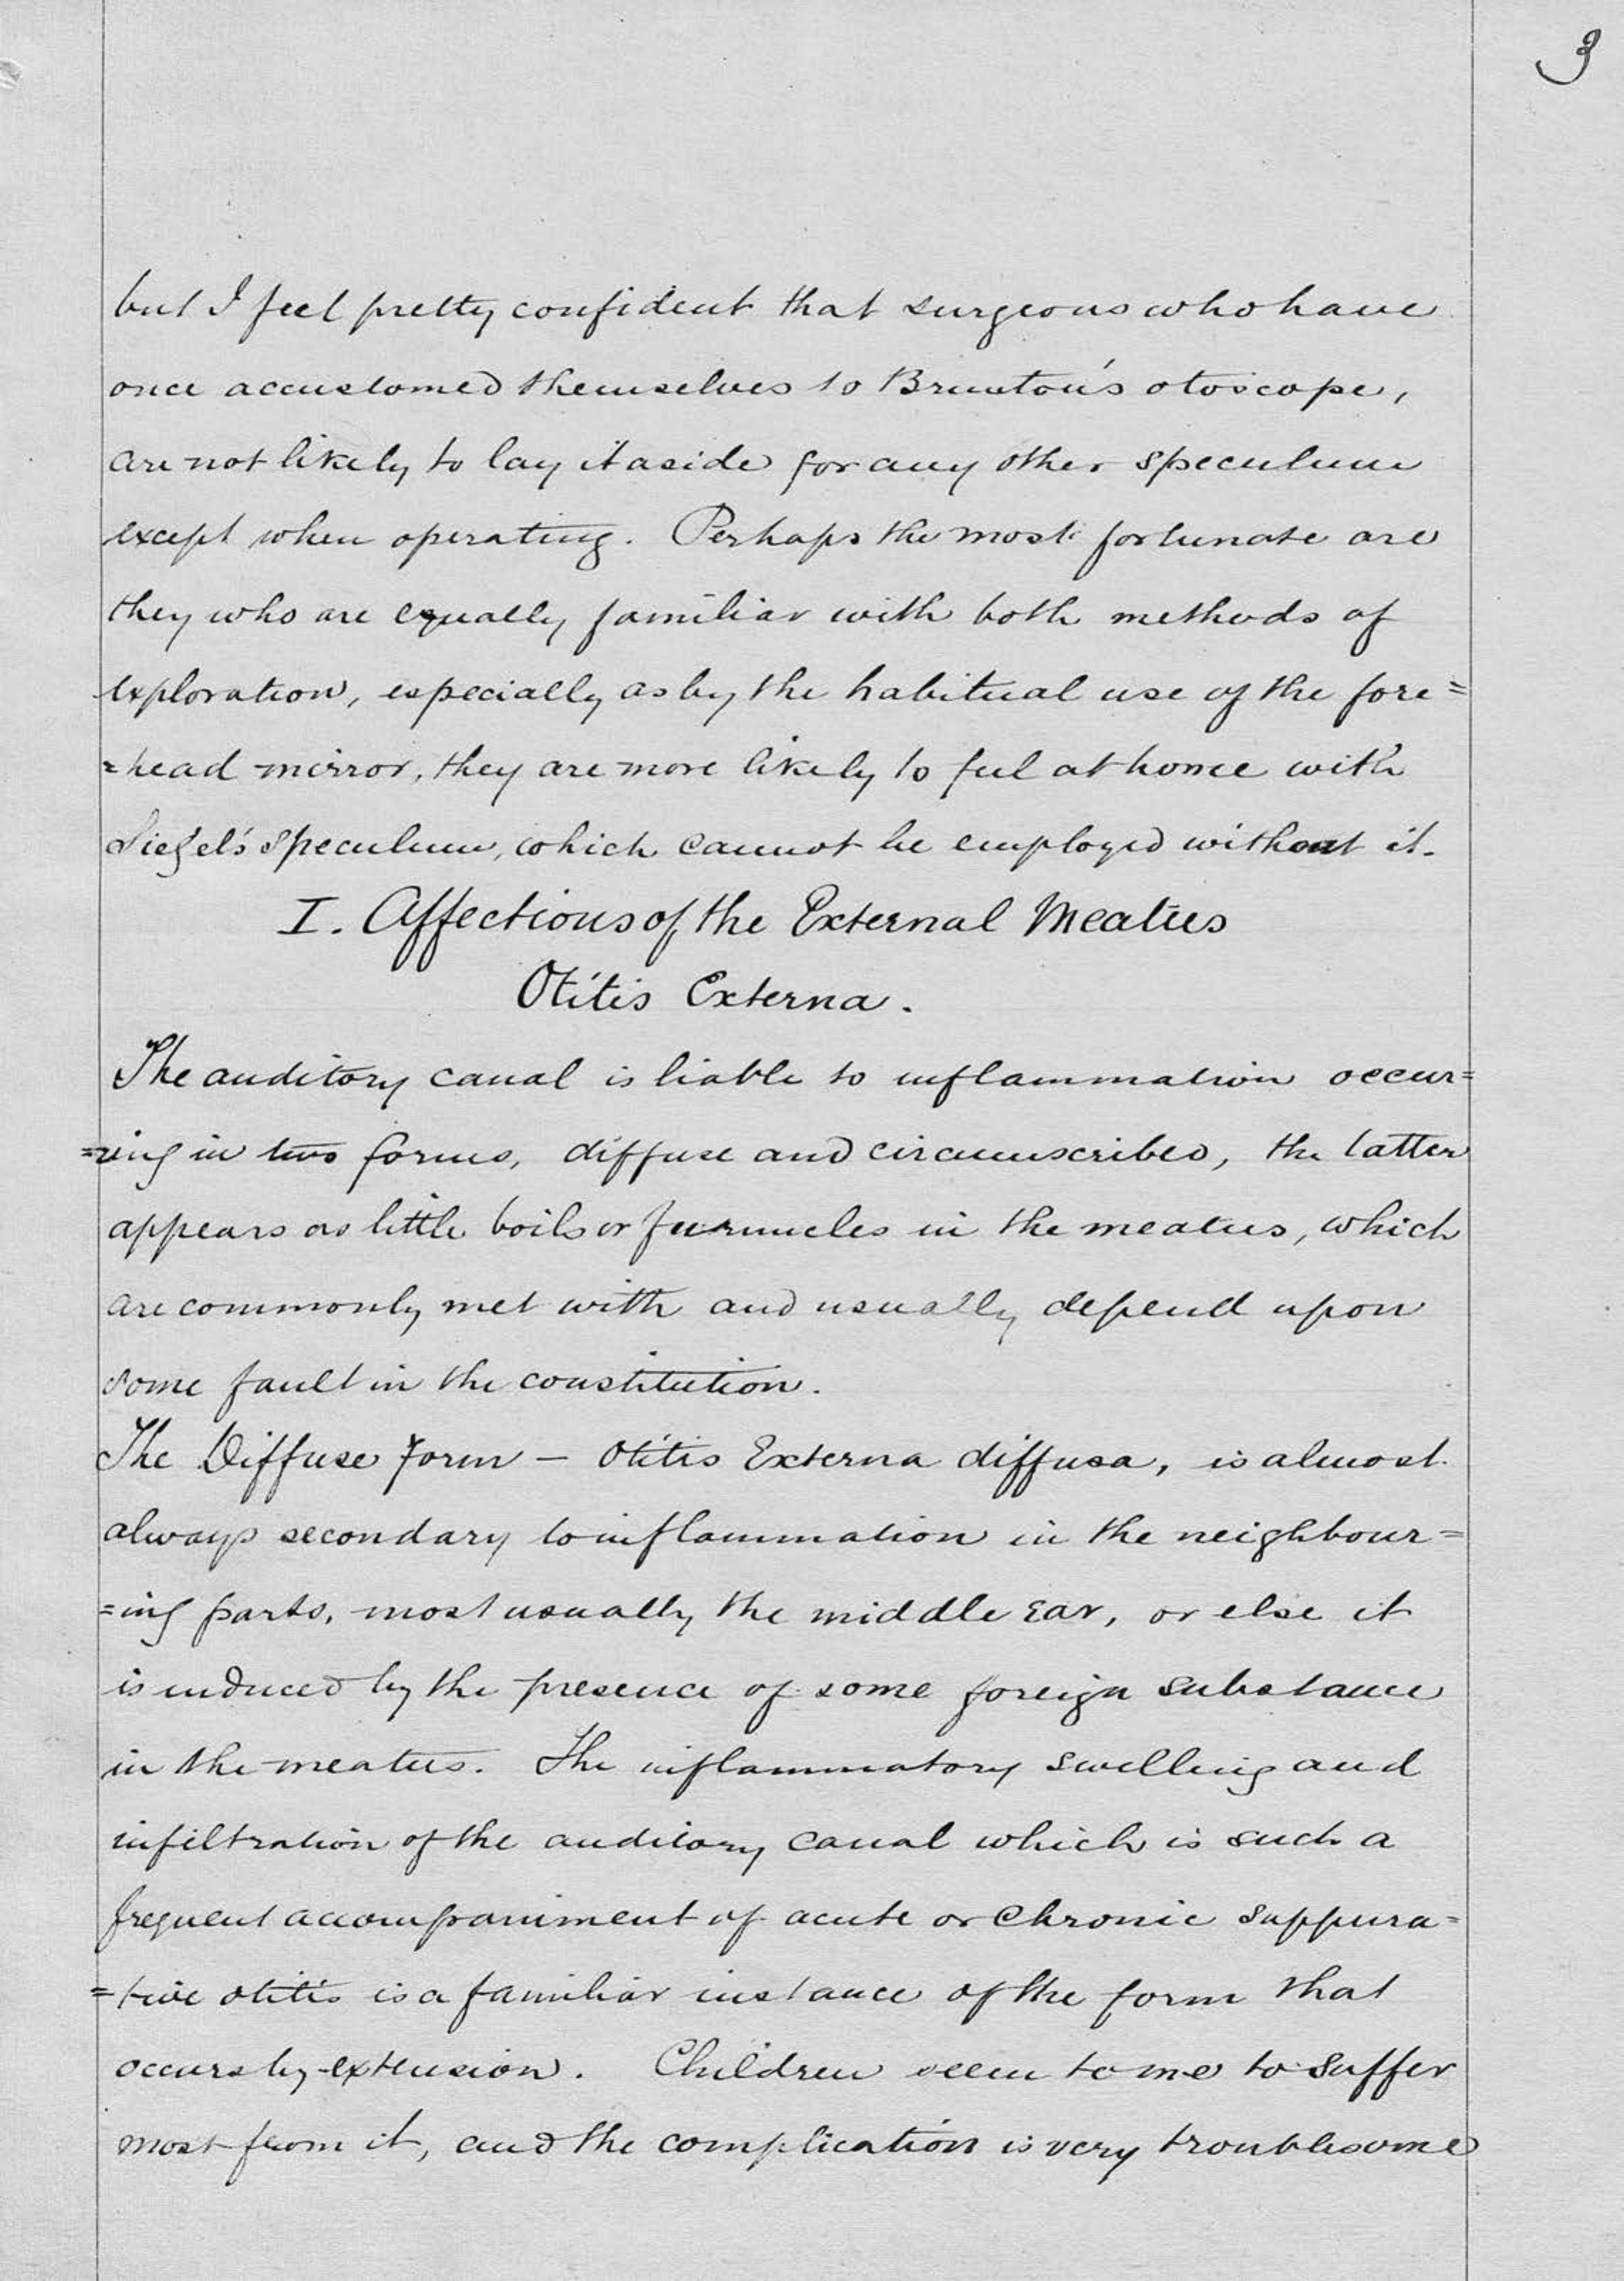 3
but I feel pretty confident that surgeons who have
once accustomed themselves to Brunton's otoscope,
are not likely to lay it aside for any other speculum
except when operating. Perhaps the most fortunate are
they who are equally familiar with both methods of
exploration, especially as by the habitual use of the fore=
=head mirror, they are more likely to feel at home with
Siegel's speculum, which cannot be employed without it.
I. Affections of the External Meatus
Otitis Externa.
The auditory canal is liable to inflammation occur=
=ring in two forms, diffuse and circumscribed, the latter
appears as little boils or furuncles in the meatus, which
are commonly met with and usually depend upon
some fault in the constitution.
The Diffuse Form – Otitis Externa diffusa, is almost
always secondary to inflammation in the neighbour=
=ing parts, most usually the middle ear, or else it
is induced by the presence of some foreign substance
in the meatus. The inflammatory swelling and
infiltration of the auditory canal which is such a
frequent accompaniment of acute or chronic suppura=
=tive otitis is a familiar instance of the form that
occurs by extension. Children seem to me to suffer
most from it, and the complication is very troublesome